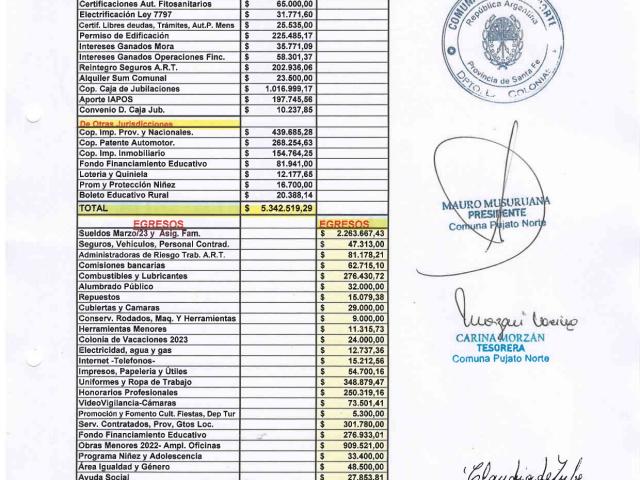 Certificaciones Aut. Fitosanitarios $ 65.000,00
Electrificación Ley 7797 $ 31.771,60
Certif. Libres deudas, Trámites, Aut.P. Mens $ 25.535,00
Permiso de Edificación $ 225.485,17
Intereses Ganados Mora $ 35.771,09
Intereses Ganados Operaciones Finc. $ 58.301,37
Reintegro Seguros A.R.T. $ 202.936,06
Alquiler Sum Comunal $ 23.500,00
Cop. Caja de Jubilaciones $ 1.016.999,17
Aporte IAPOS $ 197.745,56
Convenio D. Caja Jub. $ 10.237,85
De Otras Jurisdicciones
Cop. Imp. Prov. y Nacionales. $ 439.685,28
Cop. Patente Automotor. $ 268.254,63
Cop. Imp. Inmobiliario $ 154.764,25
Fondo Financiamiento Educativo $ 81.941,00
Loteria y Quiniela $ 12.177,65
Prom y Protección Niñez $ 16.700,00
Boleto Educativo Rural $ 20.388,14
TOTAL $ 5.342.519,29
EGRESOS EGRESOS
Sueldos Marzo/23 y Asig. Fam. $ 2.263.667,43
Seguros, Vehículos, Personal Contrad. $ 47.313,00
Administradoras de Riesgo Trab. A.R.T. $ 81.178,21
Comisiones bancarias $ 62.715,10
Combustibles y Lubricantes $ 276.430,72
Alumbrado Público $ 32.000,00
Repuestos $ 15.079,38
Cubiertas y Camaras $ 29.000,00
Conserv. Rodados, Maq. Y Herramientas $ 9.000,00
Herramientas Menores $ 11.315,73
Colonia de Vacaciones 2023 $ 24.000,00
Electricidad, agua y gas $ 12.737,36
Internet -Telefonos- $ 15.212,56
Impresos, Papeleria y Útiles $ 54.700,16
Uniformes y Ropa de Trabajo $ 348.879,47
Honorarios Profesionales $ 250.319,16
VideoVigilancia-Cámaras $ 73.501,41
Promoción y Fomento Cult. Fiestas, Dep Tur $ 5.300,00
Serv. Contratados, Prov, Gtos Loc. $ 301.780,00
Fondo Financiamiento Educativo $ 276.933,01
Obras Menores 2022- Ampl. Oficinas $ 909.521,00
Programa Niñez y Adolescencia $ 33.400,00
Área Igualdad y Género $ 48.500,00
Ayuda Social $ 27.853,81
República Argentina
Provincia de Santa Fe
DPTO. L. COLONIAS
MAURO MUSURUANA
PRESIDENTE
Comuna Pujato Norte
CARINA MORZÁN
TESORERA
Comuna Pujato Norte